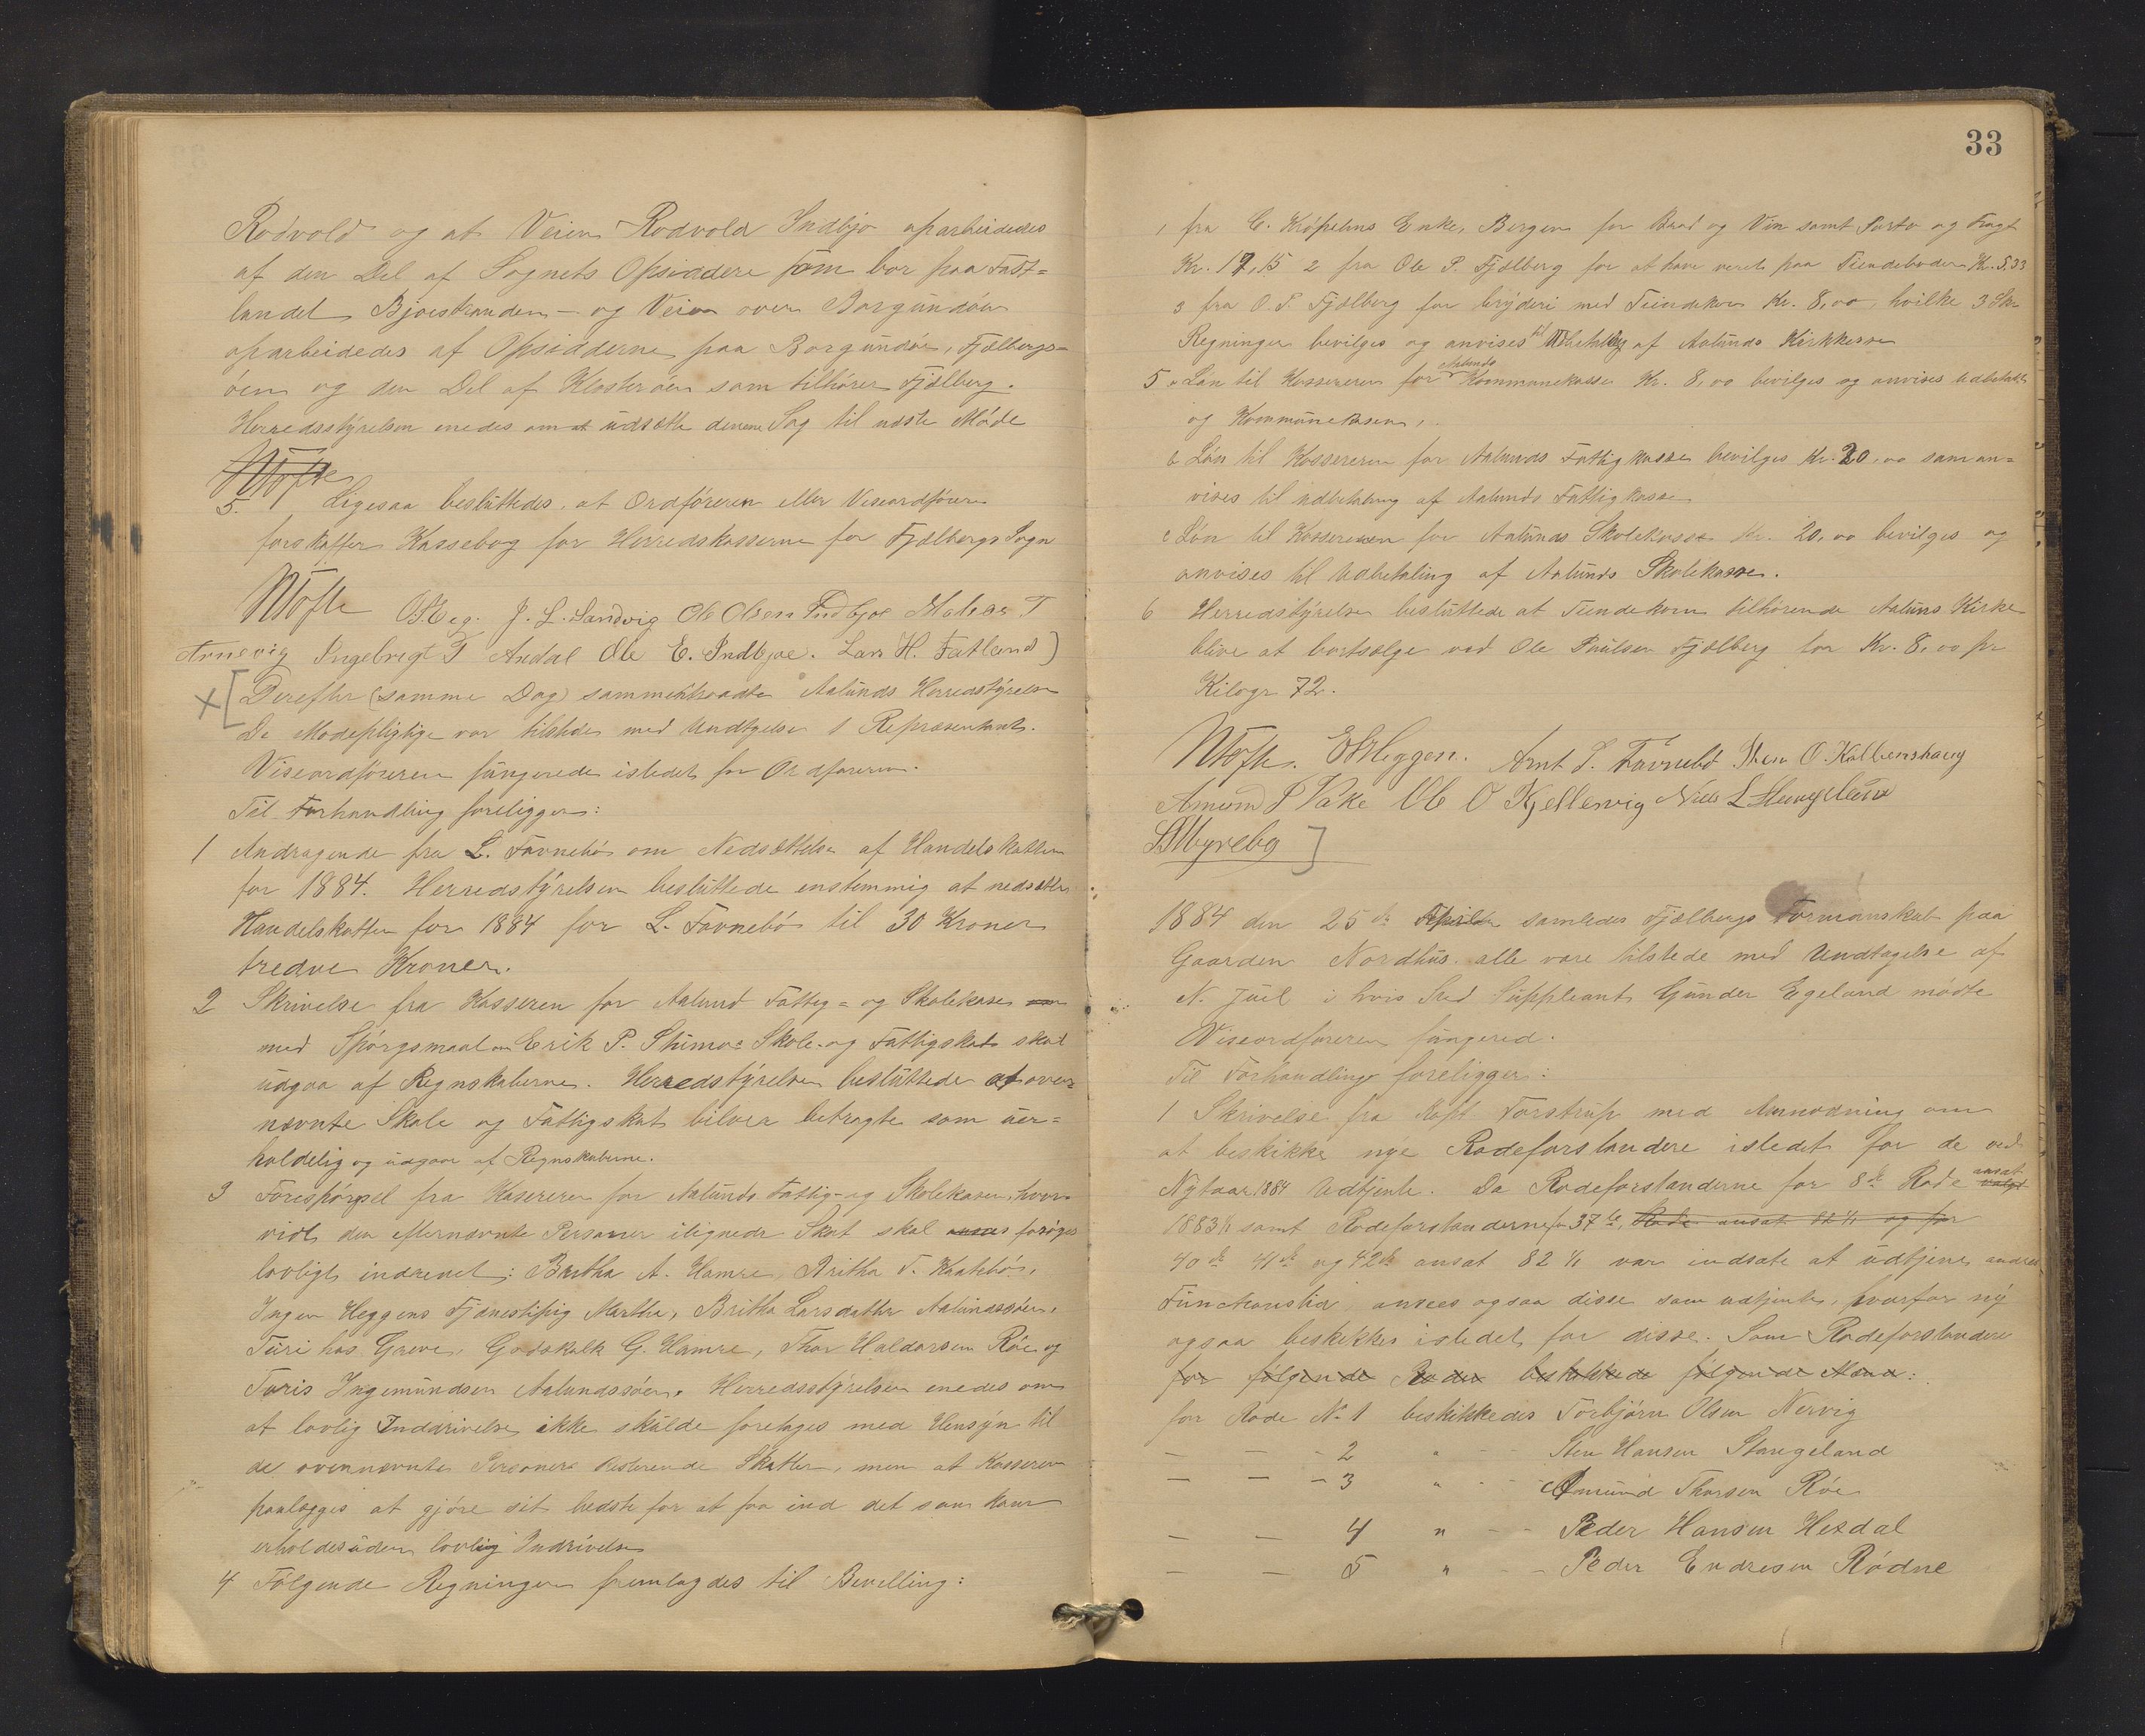 Rødvold og at Veien Rødvold Indbjo oparbeidedes
af den Del af Sognets Opsiddere som bor paa Fast=
landet Bjoestranden – og Veien over Borgundøen
oparbeidedes af Opsidderne paa Borgundøe, Fjælbergs=
øen og den Del af Klosterøen som tilhører Fjælberg.
Herredsstyrelsen enedes om at udsætte denne Sag til næste Møde
NTøfte
5. Ligesaa besluttedes, at Ordføreren eller Viseordføreren
forskaffer Kassebog for Herredskasserne for Fjælbergs Sogn
NTøfte J. L. Sandvig Ole Olsen Indbjoe Mathias T
Arnevig Ingebrigt T Andal Ole E. Indbjoe. Lars H. Fatland)
X [Derefter (samme Dag) sammentraadte Aalunds Herredstyrelse
De Mødepligtige var tilstede med Undtagelse 1 Repræsentant.
Viseordføreren fungerede istedet for Ordføreren.
Til Forhandling foreligger:
1 Andragende fra L. Tavnebø om Nedsættelse af Handelskatten
for 1884. Herredstyrelsen besluttede enstemmig at nedsætte
Handelskatten for 1884 for L. Tavnebø til 30 Kroner
tredve Kroner.
2 Skrivelse fra Kasseren for Aalund Fattig= og Skolekasse
med Spørgsmaal om Erik P. Stumos Skole- og Fattigskat skal
udgaa af Regnskaberne. Herredstyrelsen besluttede at oven
nævnte Skole og Fattigskat bliver betragte som uer=
holdelig og udgaar af Regnskaberne.
3 Forespørgsel fra Kasereren for Aalunds Fattig- og Skolekasse, hvor
vidt den efternævnte Personer ilignede Skat skal forsøges
lovligt inddrevet: Britha A. Hamre, Britha T. Kaatebø,
Inger Heggens Fjønestipig Martha, Britha Larsdatter Aalundssøen,
Turi hos Greve, Godskalk G. Hamre, Thor Haldorsen Røe og
Toris Ingemundsen Aalundssøen. Herredsstyrelsen enedes om
at lovlig Inddrivelse ikke skulde foretages med Hensyn til
de ovennævnte Personers Resterende Skatter, men at Kasseren
paalægges at gjøre sit bedste for at faa ind det som kan
erholdes uden lovlig Inddrivelse
4 Følgende Regninger fremlagdes til Bevilling:
33
1 fra C. Krøpeliens Enke, Bergen for Brød og Vin samt Porto og Fragt
Kr. 17,15 2 fra Ole P. Fjælberg for at have veret paa Tiendeboden Kr. 5,33
3 fra O. P. Fjælberg for bryderi med Tiendekorn Kr. 8,00, hvilke 3
Regninger bevilges og anvises til Udbetaling af Aalunds Kirkkasse
5 a Løn til Kassereren for Aalunds Kommunekasse Kr. 8,00 bevilges og anvises udbetalt
og Kommunekasen,
b Løn til Kassereren for Aalunds Fattigkasse bevilges Kr. 20,00 som an=
vises til udbetaling af Aalunds Fattigkasse
c Løn til Kassereren for Aalunds Skolekasse Kr. 20,00 bevilges og
anvises til Udbetaling af Aalunds Skolekasse.
6 Herredstyrelsen besluttede at Tiendekorn tilhørende Aaluns Kirke
blive at bortsælge ved Ole Paulsen Fjælberg for Kr. 8,00 pr
Kilogr 72.
NTøfte. Heggen. Arnt S. Tavnebø Sten O. Kalbenshaug
Amund P Vake Ole O Kjellesvig Nils L
Myrebø ]
1884 den 25de April samledes Fjælbergs Formanskab paa
Gaarden Nordhus. alle vare tilstede med Undtagelse af
N. Juel i hvis Sted Suppleant Gunder Egeland mødte
Viseordføreren fungered.
Til Forhandling foreligger:
1 Skrivelse fra Kapt. Torstrup med Anmodning om
at beskikke nye Rodeforstandere istedet for de ved
Nytaar 1884 Udtjente. Da Rodeforstanderne for 8de Rode ansat valgt
1883 1/1 samt Rodeforstanderne for 37te, Rode ansat 82 1/1 og for
40de 41de og 42de ansat 82 1/1 var indsate at udtjene andres
Funktionstid ansees ogsaa disse som udtjente, hvorfor ny
ogsaa beskikkes istedet for disse. Som Rodeforstandere
for følgende Roder beskikkede følgende Mænd:
for Rode No 1 beskikkedes Torbjørn Olsen Nervig
— — – 2 " - - Sten Hansen Stangeland
— — – 3 " - - Amund Thorsen Røe
— — 4 " - - Peder Hansen Hetdal
— — 5 " - - Peder Endresen Rødne